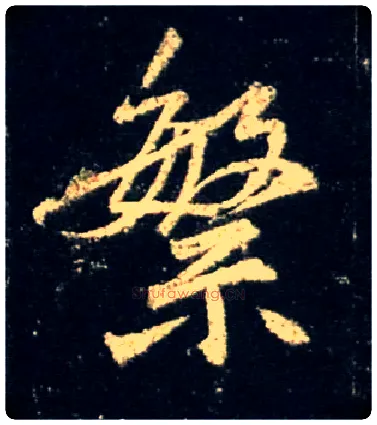 繁
Shufawang.CN